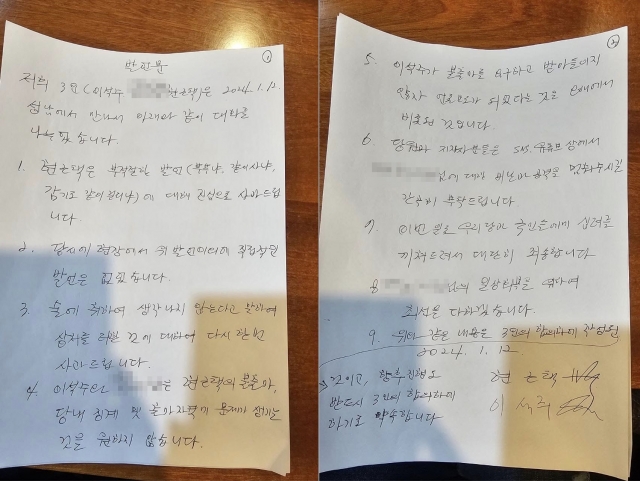 발표문
①
저희 3인(이석주 현근택)은 2024.1.12.
성남에서 만나서 아래와 같이 대화를
나누었습니다.
1. 현근택은 부적절한 발언(부부냐, 같이 사냐,
감기도 같이 걸리냐)에 대해 진심으로 사과드립
니다.
2. 당시에 현장에서 위 발언 이외에 직접적인
발언은 없었습니다.
3. 술에 취하여 생각나지 않는다고 말하여
상처를 준 것에 대하여 다시 한번
사과드립니다.
4. 이석주와 는 현근택의 불출마,
당내 징계 및 출마자격기 문제가 생기는
것을 원하지 않습니다.
②
5. 이석주가 불출마를 요구하고 받아들여지
않자 언론보도가 되었다는 것은 오해에서
비롯된 것입니다.
6. 당원과 지지자분들은 SNS, 유튜브 상에서
님에 대한 비난과 공격을 멈춰주시길
간곡히 부탁드립니다
7. 이번 일로 우리당과 국민들에게 심려를
끼쳐드려서 대단히 죄송합니다
8. 님의 회복을 위하여
최선을 다하겠습니다.
9. 위와 같은 내용은 3인의 합의하에 작성된
것이고, 향후 진행도
반드시 3인의 합의하에
하기로 약속합니다
2024. 1. 12
현근택
이석주